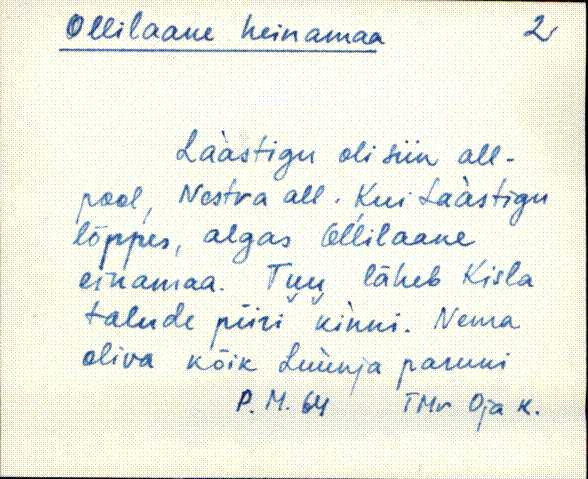 Ollilaane heinamaa 2
Laàstigu oli siin all-
pool, Nestra all. Kui Laàstigu
lõppes, algas Ollilaane
einamaa. Tuu läheb Kisla
talude piiri kinni. Nema
oliva kõik Luùnja paruni
P. M. 64 TMr Oja k.